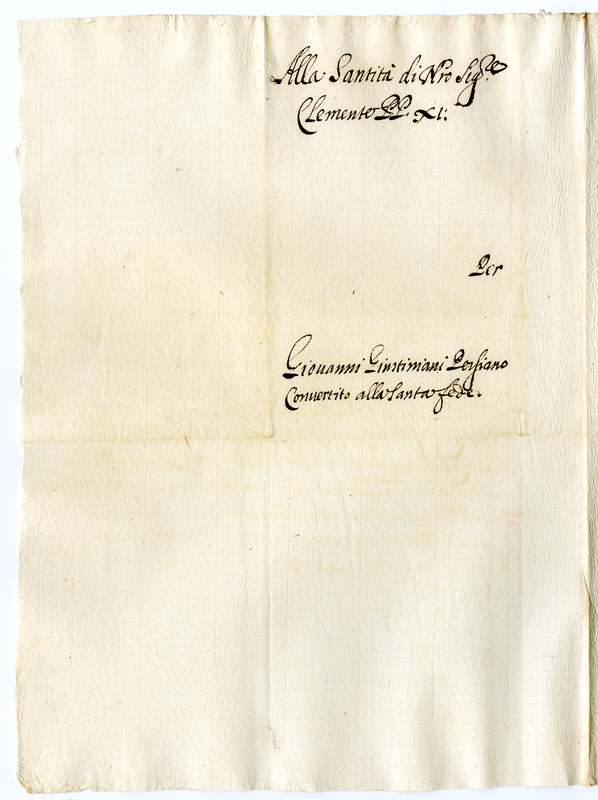 Alla Santità di Nro Sig.re
Clemente PP. XI:
Per
Giovanni Giustiniani Persiano
Convertito alla Santa fede.